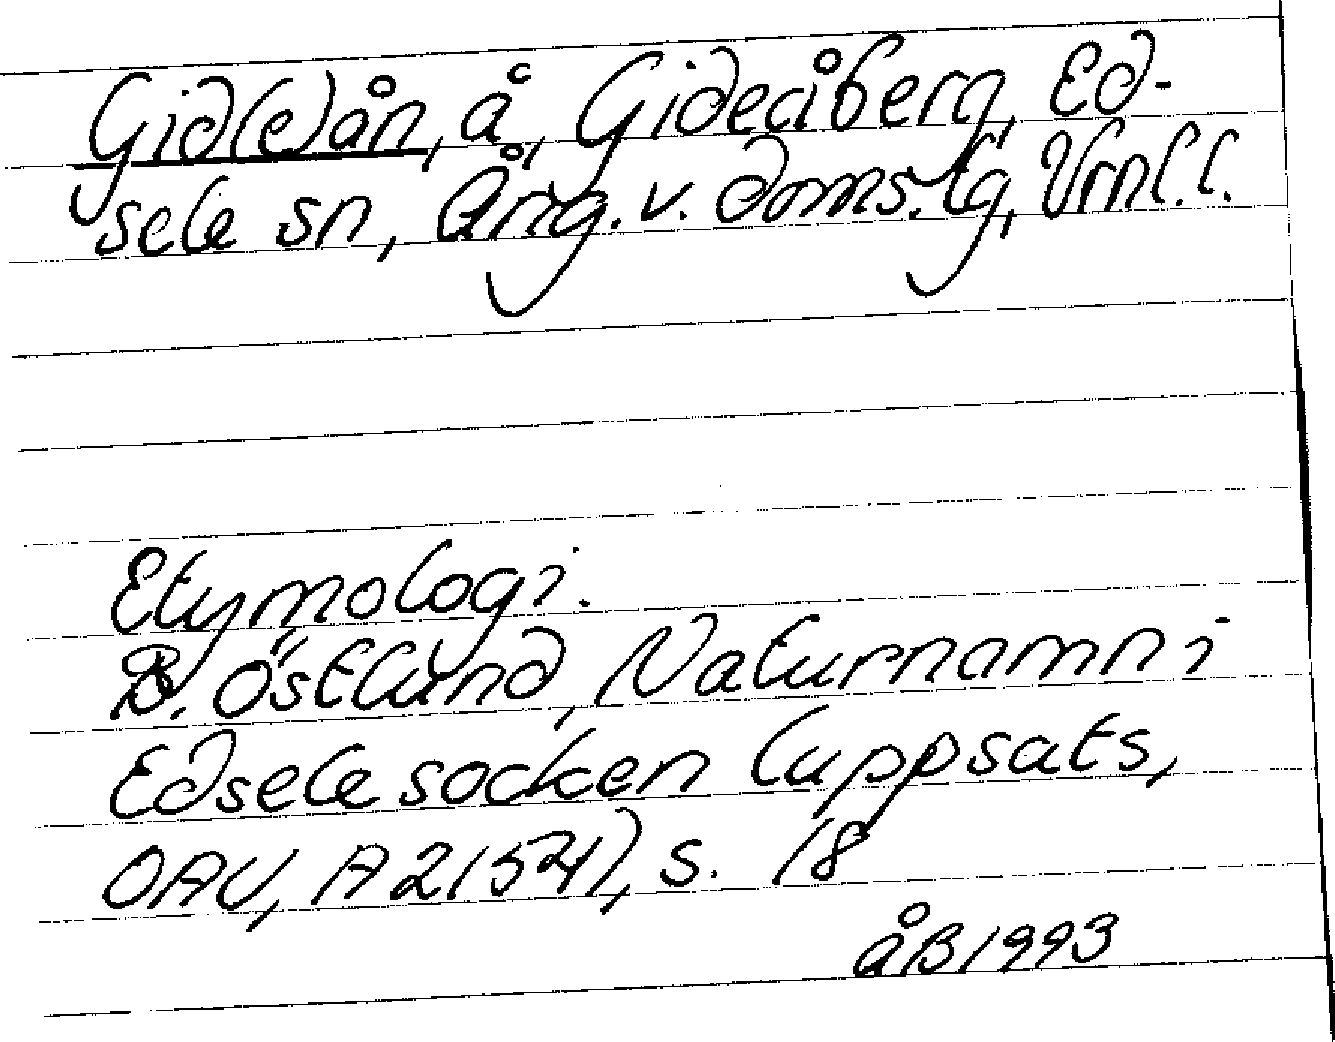 Gid(e)ån, å, Gideåberg, Ed-
sele sn, Ång. v. doms.lg, Vrnl.l.
Etymologi.
B. Östlund, Naturnamn i
Edsele socken (uppsats,
OAU, A21541), s. 18
ÅB 1993